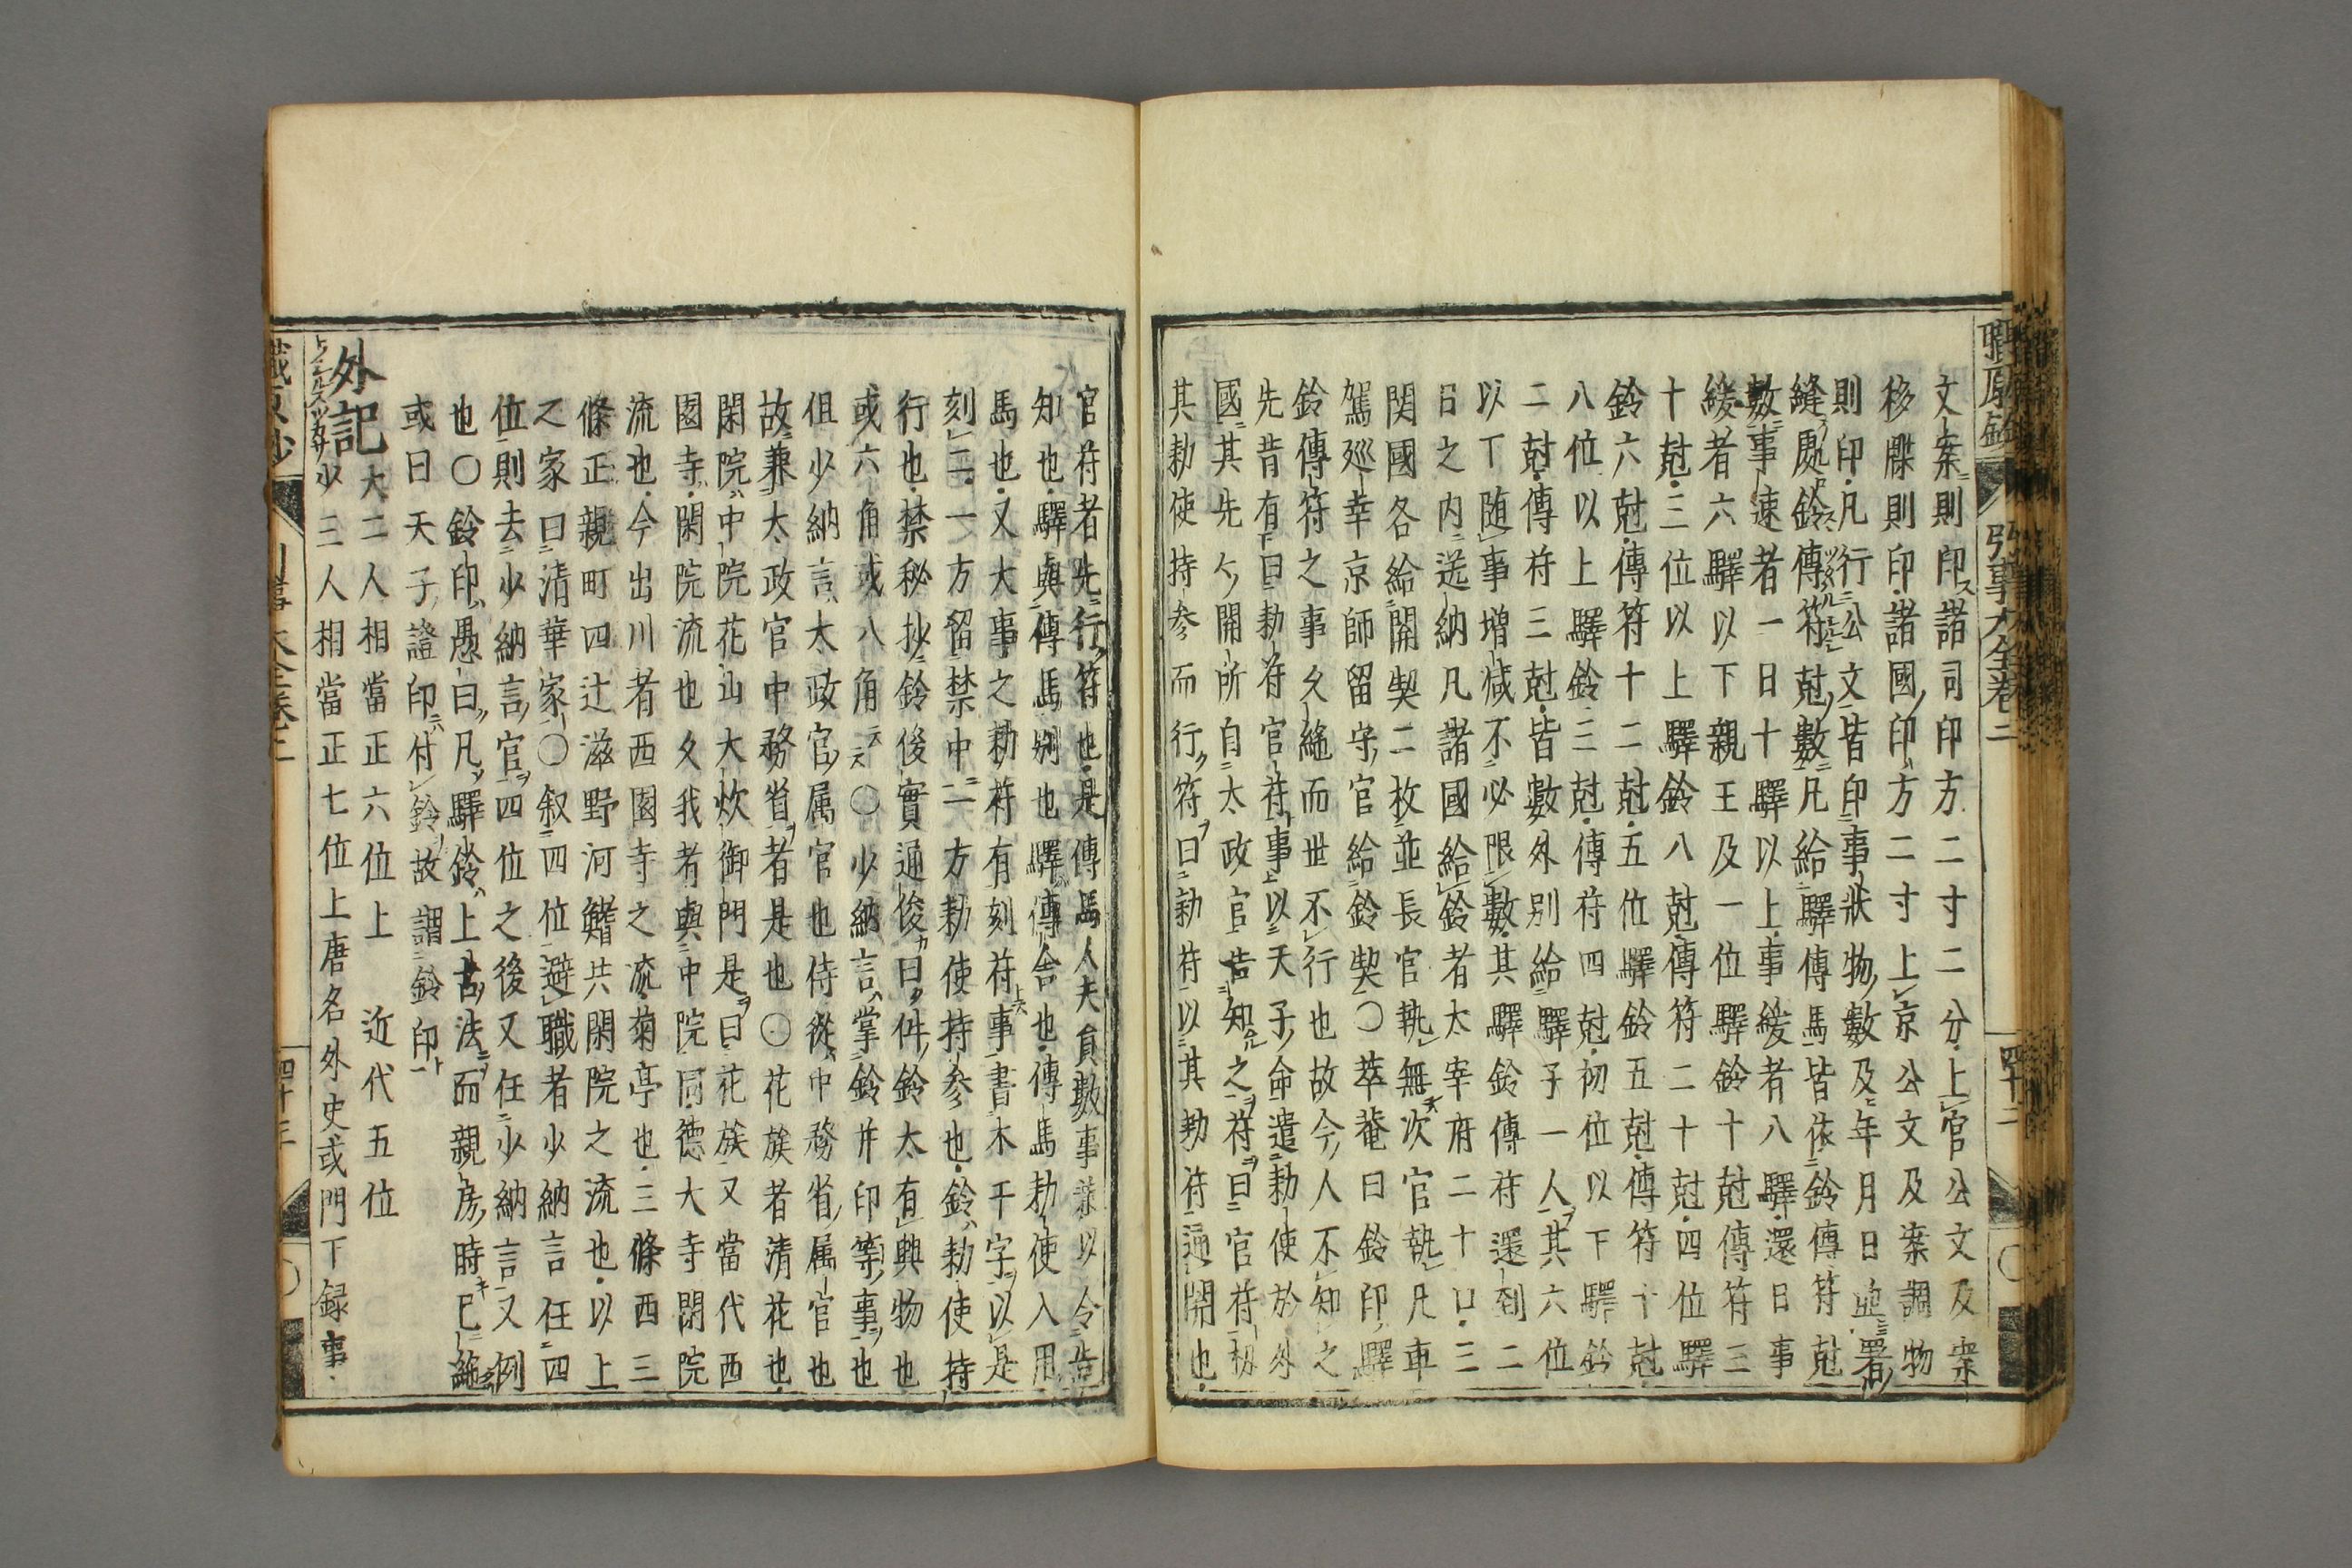 文案則印諸司印方二寸二分上官公文及案
移牒則印諸國印方二寸上京公文及案調物
則印凡行公文皆印事狀物數及年月日並署
縫處鈴傳符尅數凡給驛傳馬皆依鈴傳符尅
數事速者一日十驛以上事緩者八驛還日事
緩者六驛以下親王及一位驛鈴十尅傳符三
十尅三位以上驛鈴八尅傳符二十尅四位驛
鈴六尅傳符十二尅五位驛鈴五尅傳符十尅
八位以上驛鈴三尅傳符四尅初位以下驛鈴
二尅傳符三尅皆數外別給驛子一人其六位
以下随事增減不必限數其驛鈴傳符還到二
日之内送納凡諸國給鈴者太宰府二十口三
関國各給開契二枚並長官執無次官執凡車
駕巡幸京師留守官給鈴契〇萃菴曰鈴印驛
鈴傳符之事久絶而世不行也故今人不知之
先昔有曰勅符官符事以天子命遣勅使於外
國其先々開所自太政官告知之符曰官符
其勅使持参而行符曰勅符以其勅符通開也
官符者先行符也是傳馬人夫員數事兼以令造
知也驛與傳馬別也驛傳舍也傳馬勅使入用
馬也又大事之勅符有刻符事書木干字以是
刻二一方留禁中一方勅使持参也鈴勅使持
行也禁秘抄鈴後實通俊曰件鈴太有興物也
或六角或八角云云〇少納言掌鈴并印等事也
但少納言太政官属官也侍從中務省属官也
故兼太政官中務省者是也〇花族者清花也
閑院中院花山大炊御門是曰花族又當代西
園寺閑院流也久我者與中院同德大寺閑院
流也今出川者西園寺之流菊亭也三條西三
條正親町四辻滋野河鰭共閑院之流也以上
之家曰清華家〇叙四位避職者少納言任四
位則去少納言官四位之後又任少納言又例
也〇鈴印愚曰凡驛鈴上古法而親房時已絶
或曰天子證印付鈴故謂鈴印
外記大二人相當正六位上 近代五位
少三人相當正七位上唐名外史或門下録事